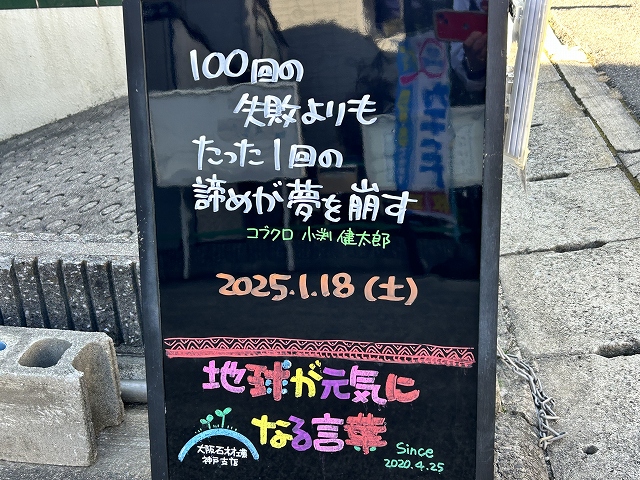 100回の
失敗よりも
たった1回の
諦めが夢を崩す
コブクロ 小渕 健太郎
2025.1.18(土)
地球が元気に
なる言葉
大阪石材工業
神戸店
Since
2020.4.25